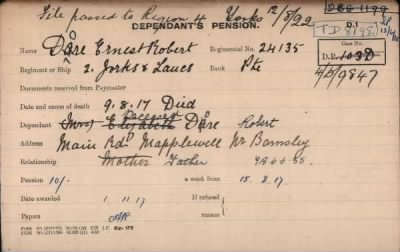 File passed to Region 4 Yorks 12/8/22
DEPENDANT'S PENSION.
D.1
Name Dare Ernest Robert Regimental No. 24135
TD 8198
Case No.
Regiment or Ship 2. Yorks & Lancs Pte
D.P.
4/D/9847
Documents received from Paymaster
Date and cause of death 9.8.17 Died
Deceased
Dependant (Mrs) Elizabeth Dare Robert
Address Main Rd. Mapplewell Nr Barnsley
Relationship Mother Father
Pension 10/- a week from 15.8.17
Date awarded 1.11.17 If refused
reason
Papers